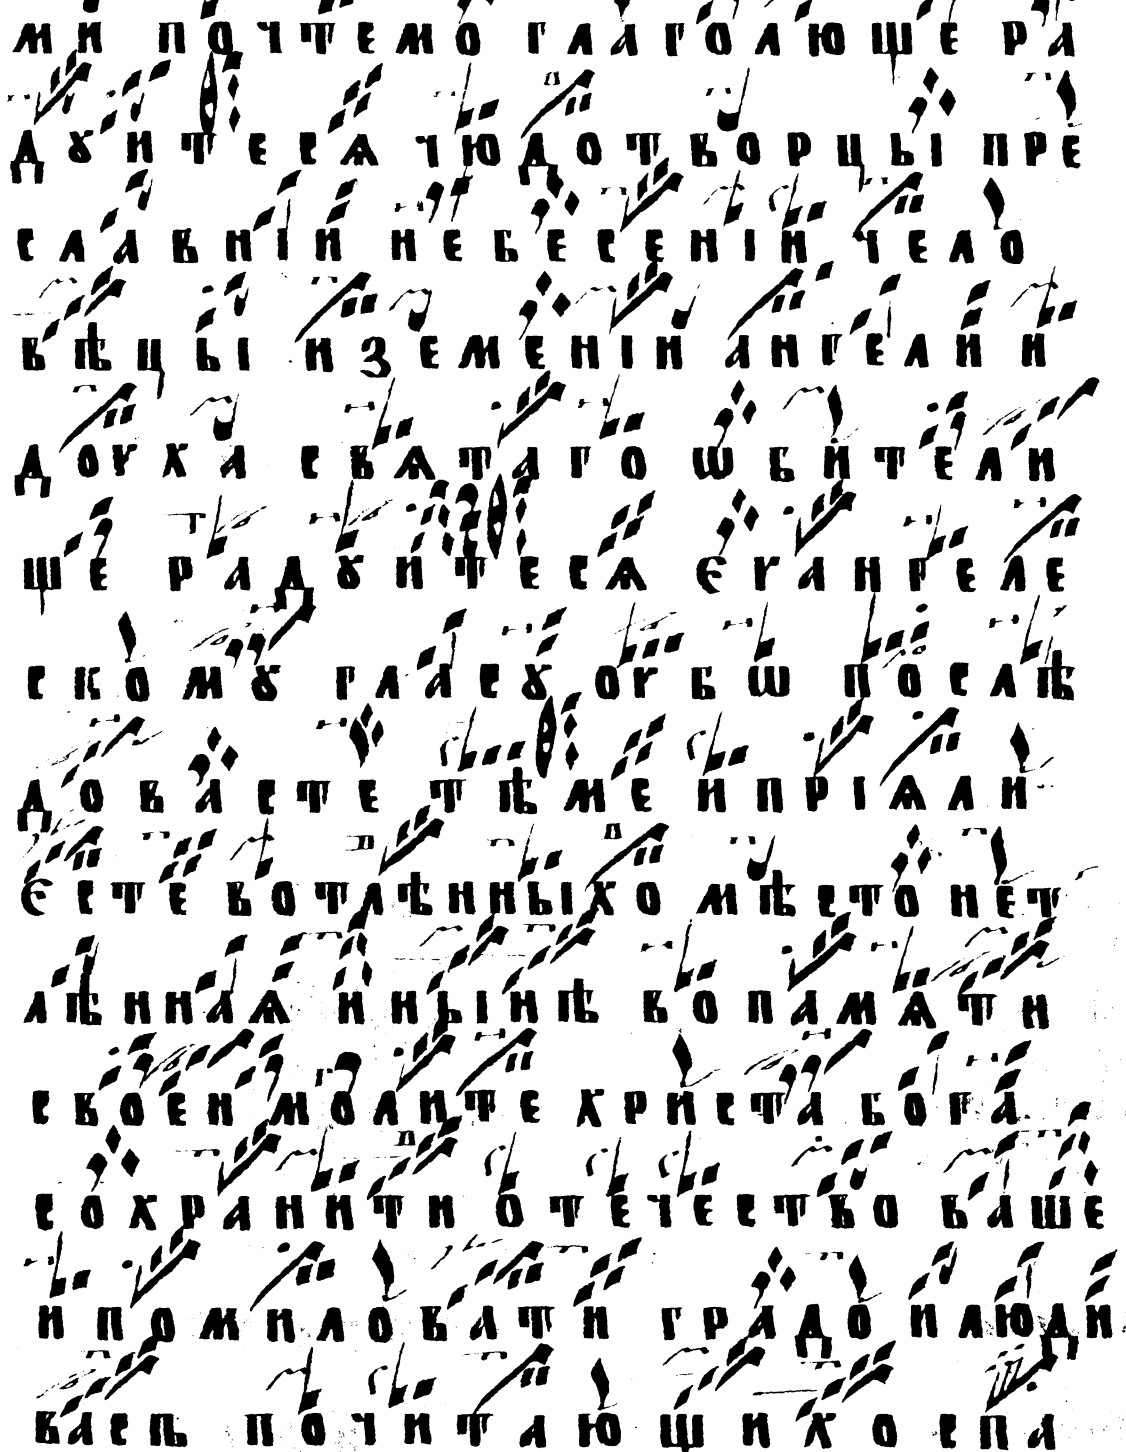 ми почтемо глаголюще ра
дꙋитесѧ чюдотворцьі пре
славніи небесеніи чело
вѣцьі и земеніи ангели и
доуха свѧтаго ѡбители
ще радꙋитесѧ єуангеле
скомꙋ гласꙋ оубѡ послѣ
довасте тѣме и пріѧли
єсте во тлѣнньіхо мѣсто нет
лѣннаѧ и ньінѣ во памѧти
своеи молите христа бога
сохранити отечество ваше
и помиловати градо и люди
васъ почитающихо спа